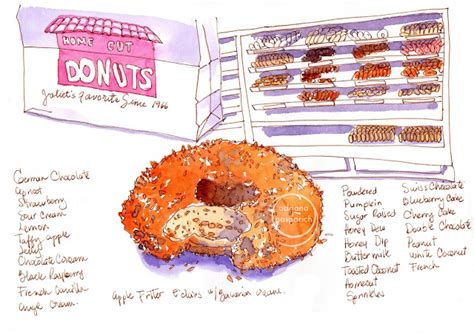 HOME CUT
DONUTS
Joliet's Favorite Since 1966
German Chocolate
Strawberry
Sour Cream
Lemon
Taffy apple
Jelly
Chocolate
Black Raspberry
French Vanilla
Angel Cream
Apple Fritter Eclairs w/ Bavarian Cream.
gasparich
Powdered
Pumpkin
Sugar Raised
Honey Dew
Honey Dip
Butter milk
Toasted Coconut
Homecut
Sprinkles
Swiss Chocolate
Blueberry Cake
Cherry Cake
Double Chocolate
Peanut
White Coconut
French